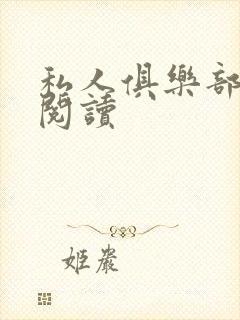 私人俱樂部
閱讀
姬嚴